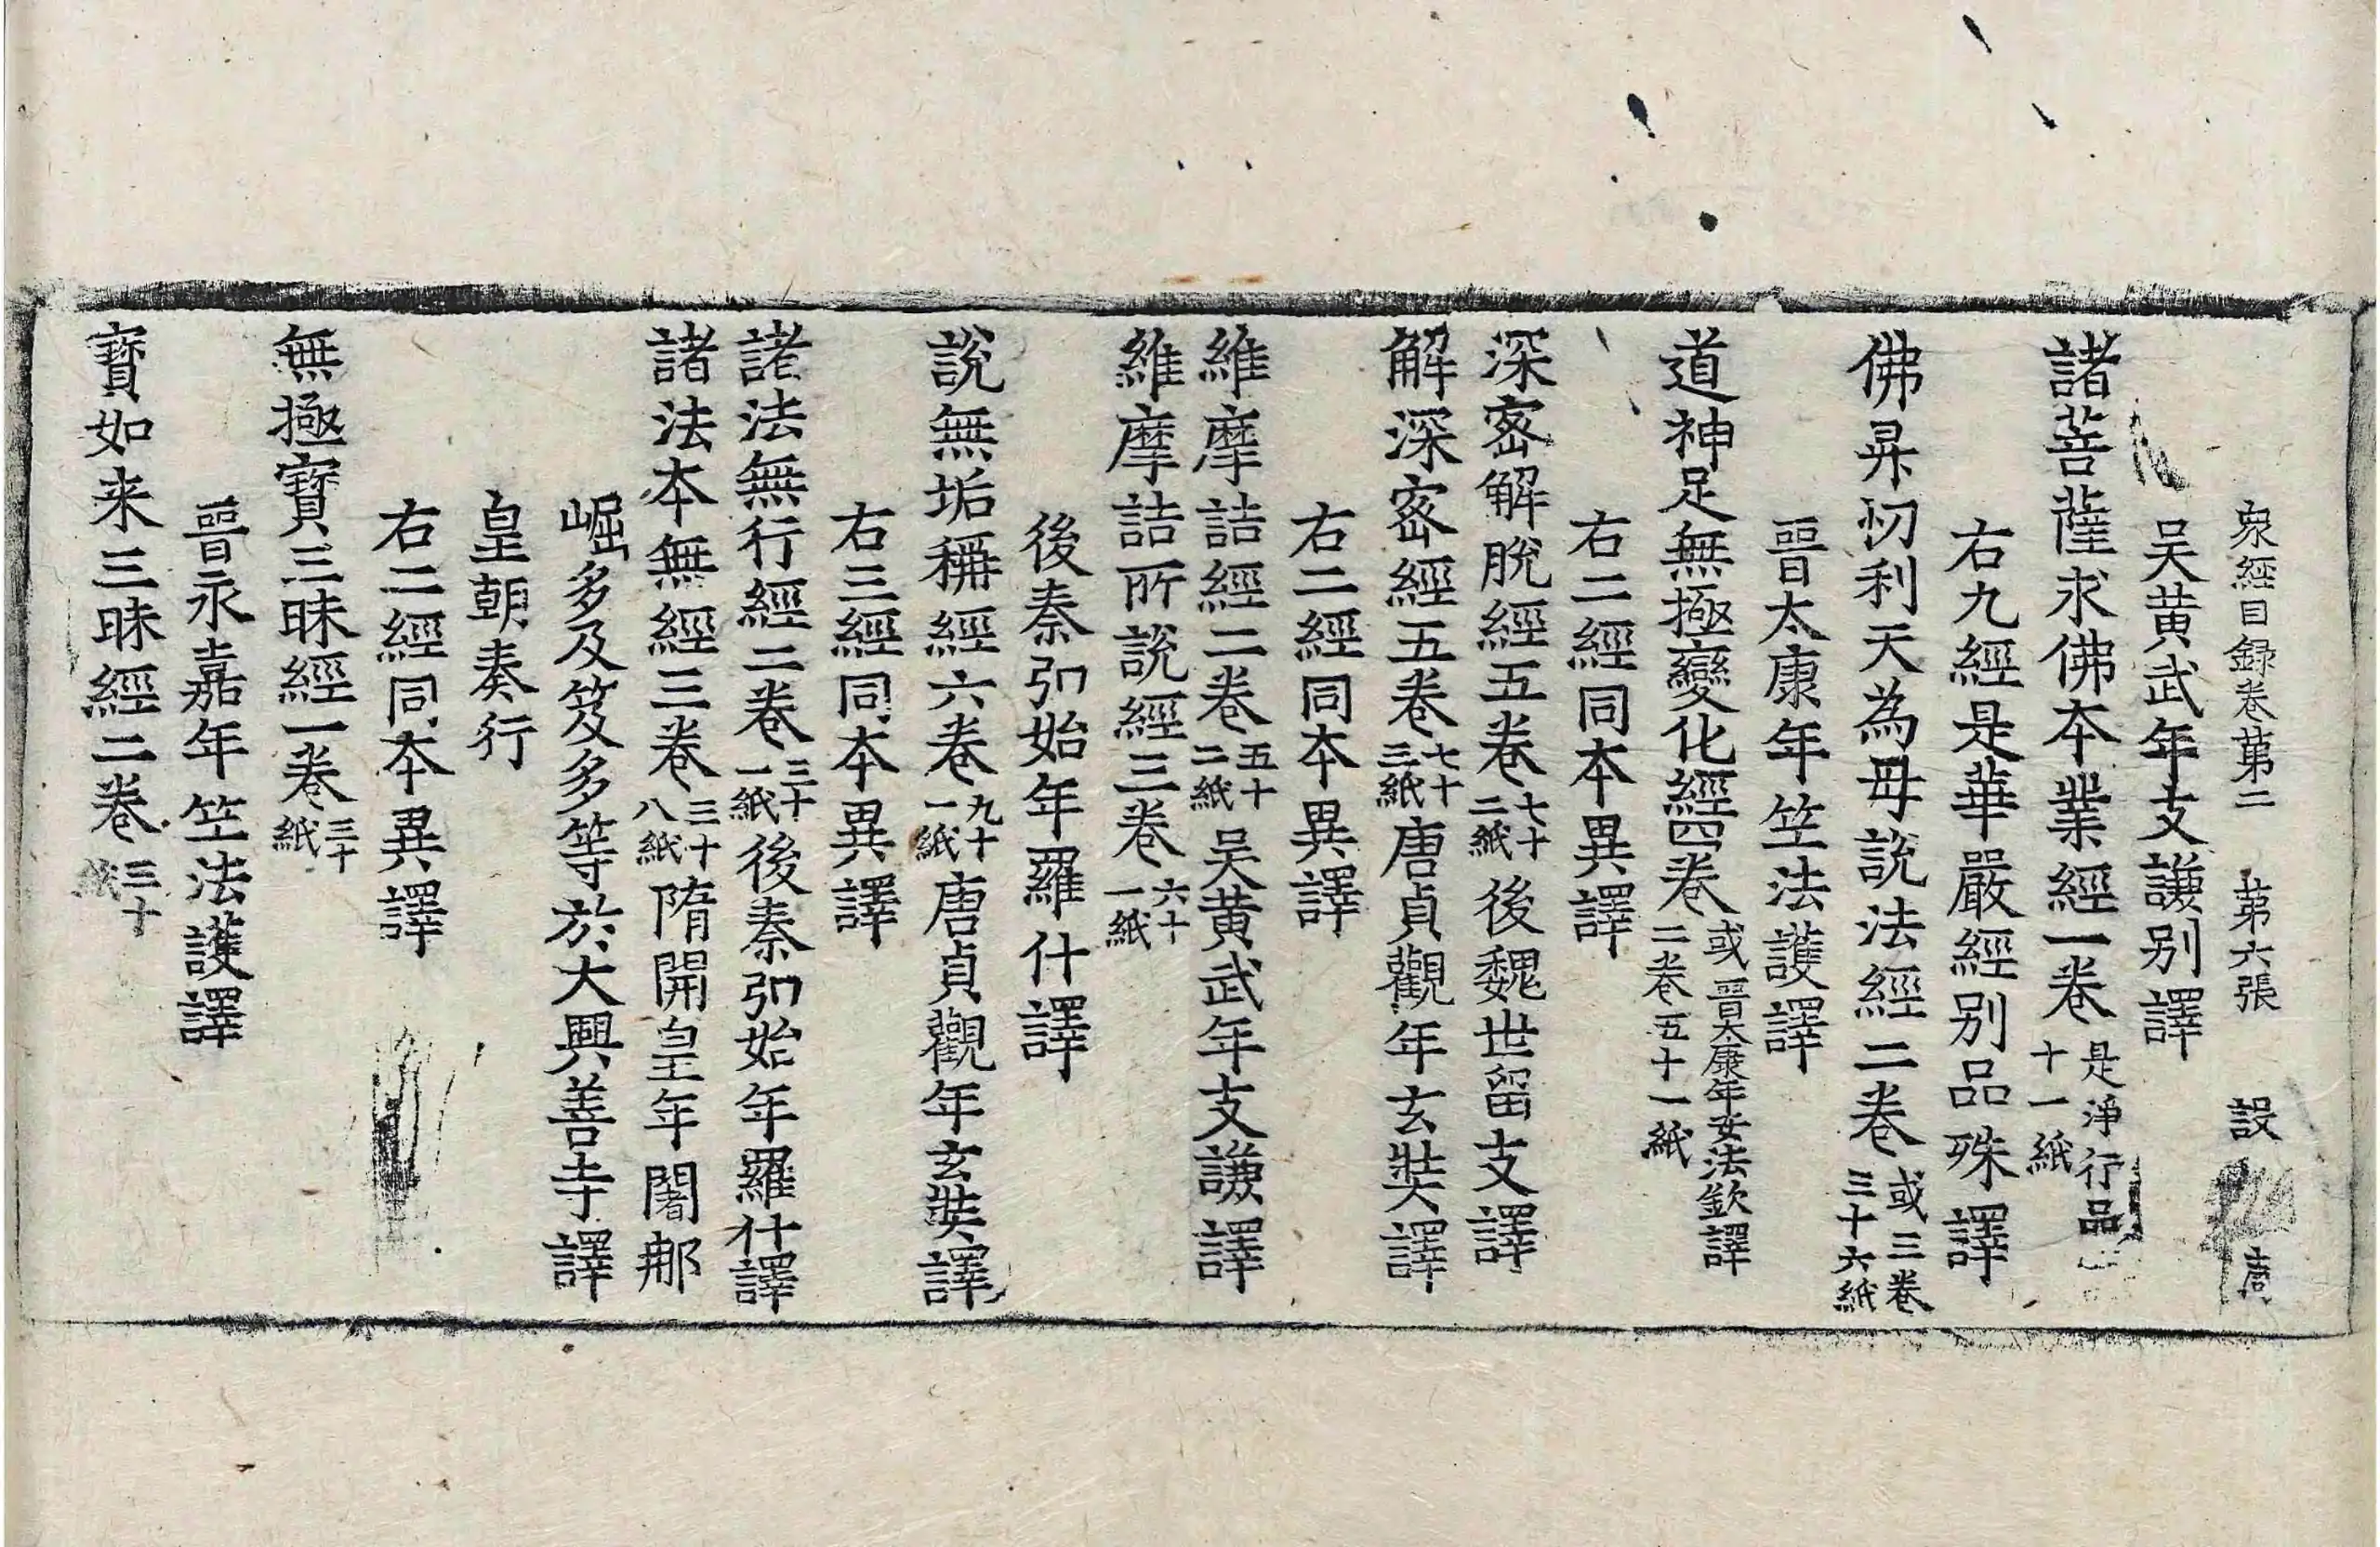 泉經目録卷第二 第六張 設
吴黄武年支謙别譯
諸菩薩求佛本業經一卷是淨行品十一紙
右九經是華嚴經别品殊譯
佛昇忉利天為毋說法經二卷或三卷三十六紙
晉太康年竺法護譯
道神足無極變化經四卷或二卷五十一紙晉太康年安法欽譯
右二經同本異譯
深密解脫經五卷七十二紙後魏世留支譯
解深密經五卷七十三紙唐貞觀年玄奘譯
右二經同本異譯
維摩詰經二卷五十二紙吴黄武年支謙譯
維摩詰所說經三卷六十一紙
後秦弘始年羅什譯
說無垢稱經六卷九十一紙唐貞觀年玄奘譯
右三經同本異譯
諸法無行經二卷三十一紙後秦弘始年羅什譯
諸法本無經三卷三十八紙隋開皇年闍那
崛多及笈多等於大興善寺譯
皇朝奏行
右二經同本異譯
無極寶三昧經一卷三十紙
晉永嘉年竺法護譯
寶如来三昧經二卷三十紙